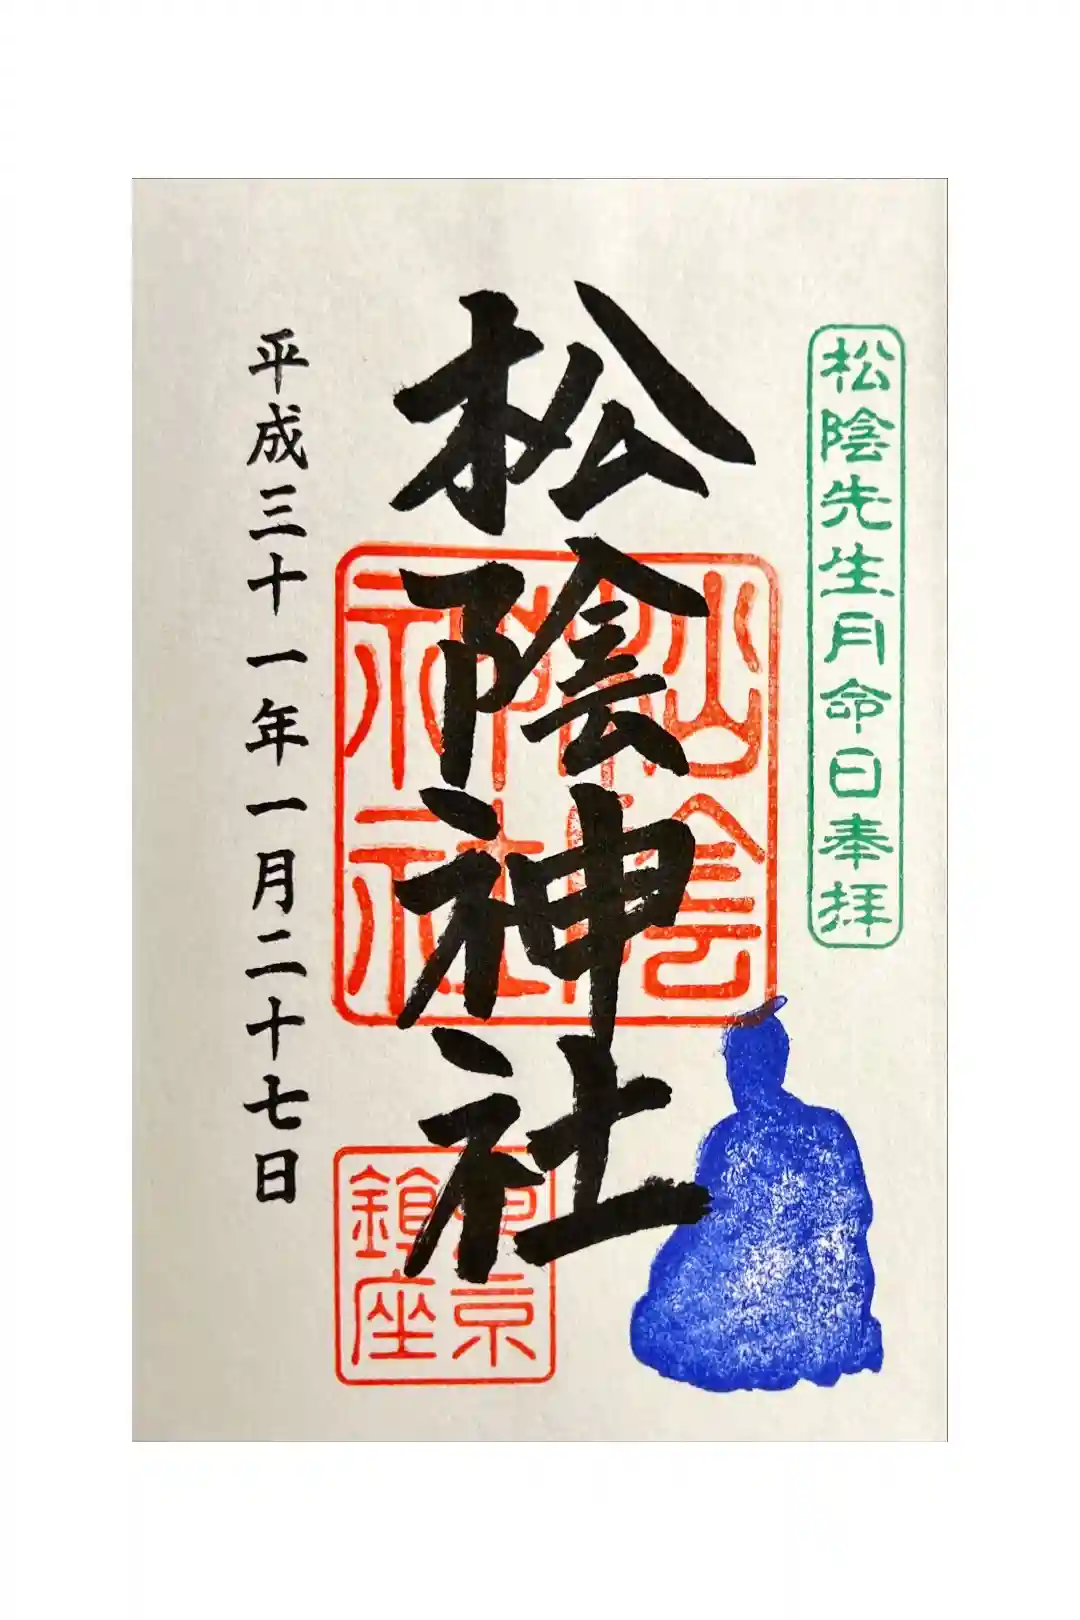 松陰先生月命日奉拝
松陰神社
松陰神社
東京鎮座
平成三十一年一月二十七日